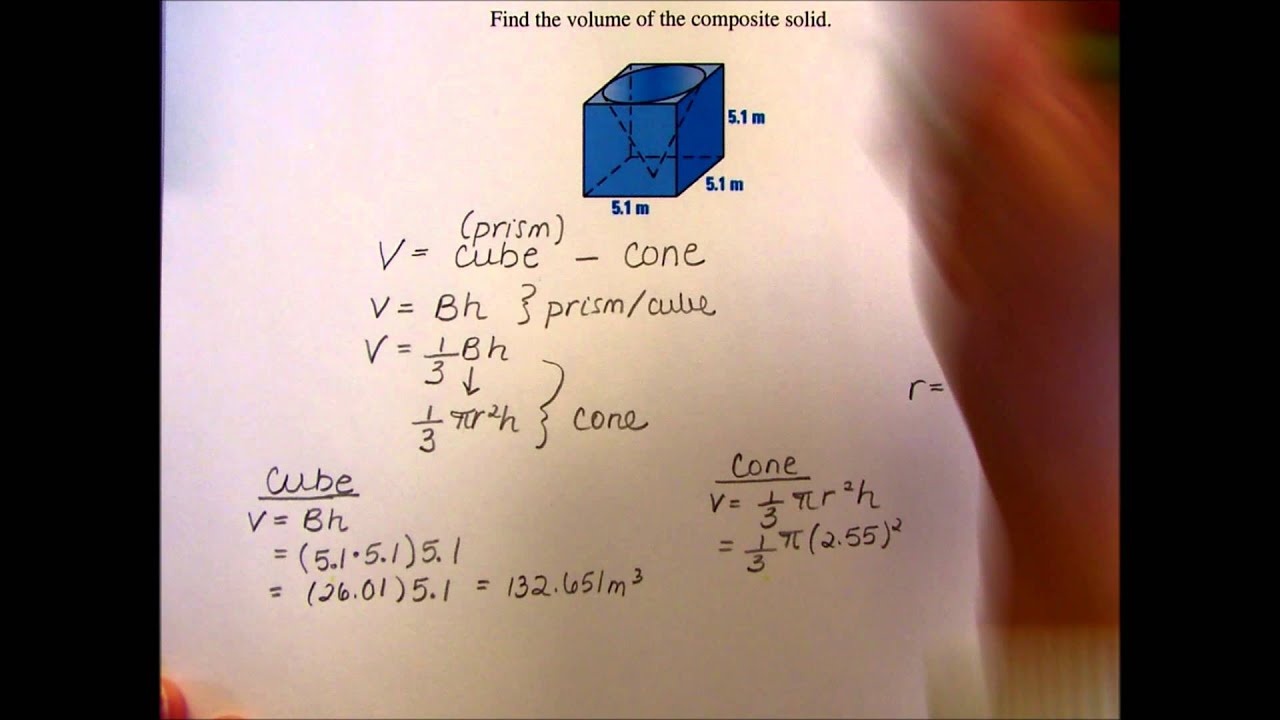 Find the volume of the composite solid.
5.1 m
5.1 m
5.1 m
(prism)
V = cube - cone
V = Bh } prism/cube
V = 1/3 Bh
↓
1/3 πr²h } cone
r =
Cube
V = Bh
= (5.1·5.1)5.1
= (26.01)5.1 = 132.651m³
Cone
V = 1/3 πr²h
= 1/3 π(2.55)²